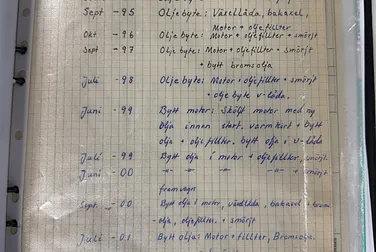 Sept - 95 Oljebyte: Växellåda, bakaxel,
Motor + oljefillter
Okt - 96 Oljebyte: Motor + oljefillter + smörjt
Sept - 97 Oljebyte: Motor + oljefillter + smörjt
+ bytt bromsolja
Juli - 98 Oljebyte: Motor + oljefillter + smörjt
+ olje byte v-låda.
Juni - 99 Bytt motor: Sköljt motor med ny
olja innan start, varmkört + bytt
olja + oljefillter. bytt olja i v-låda
Juli - 99 Bytt olja i motor + oljefillter, smörjt.
Juni - 00 -"- -"- -"- + smörjt
framvagn
Sept. - 00 Bytt olja i motor, växellåda, bakaxel +
-olja, oljefilter. + smörjt
Juli - 01 Bytt olja: Motor + fillter, Bromsolja.